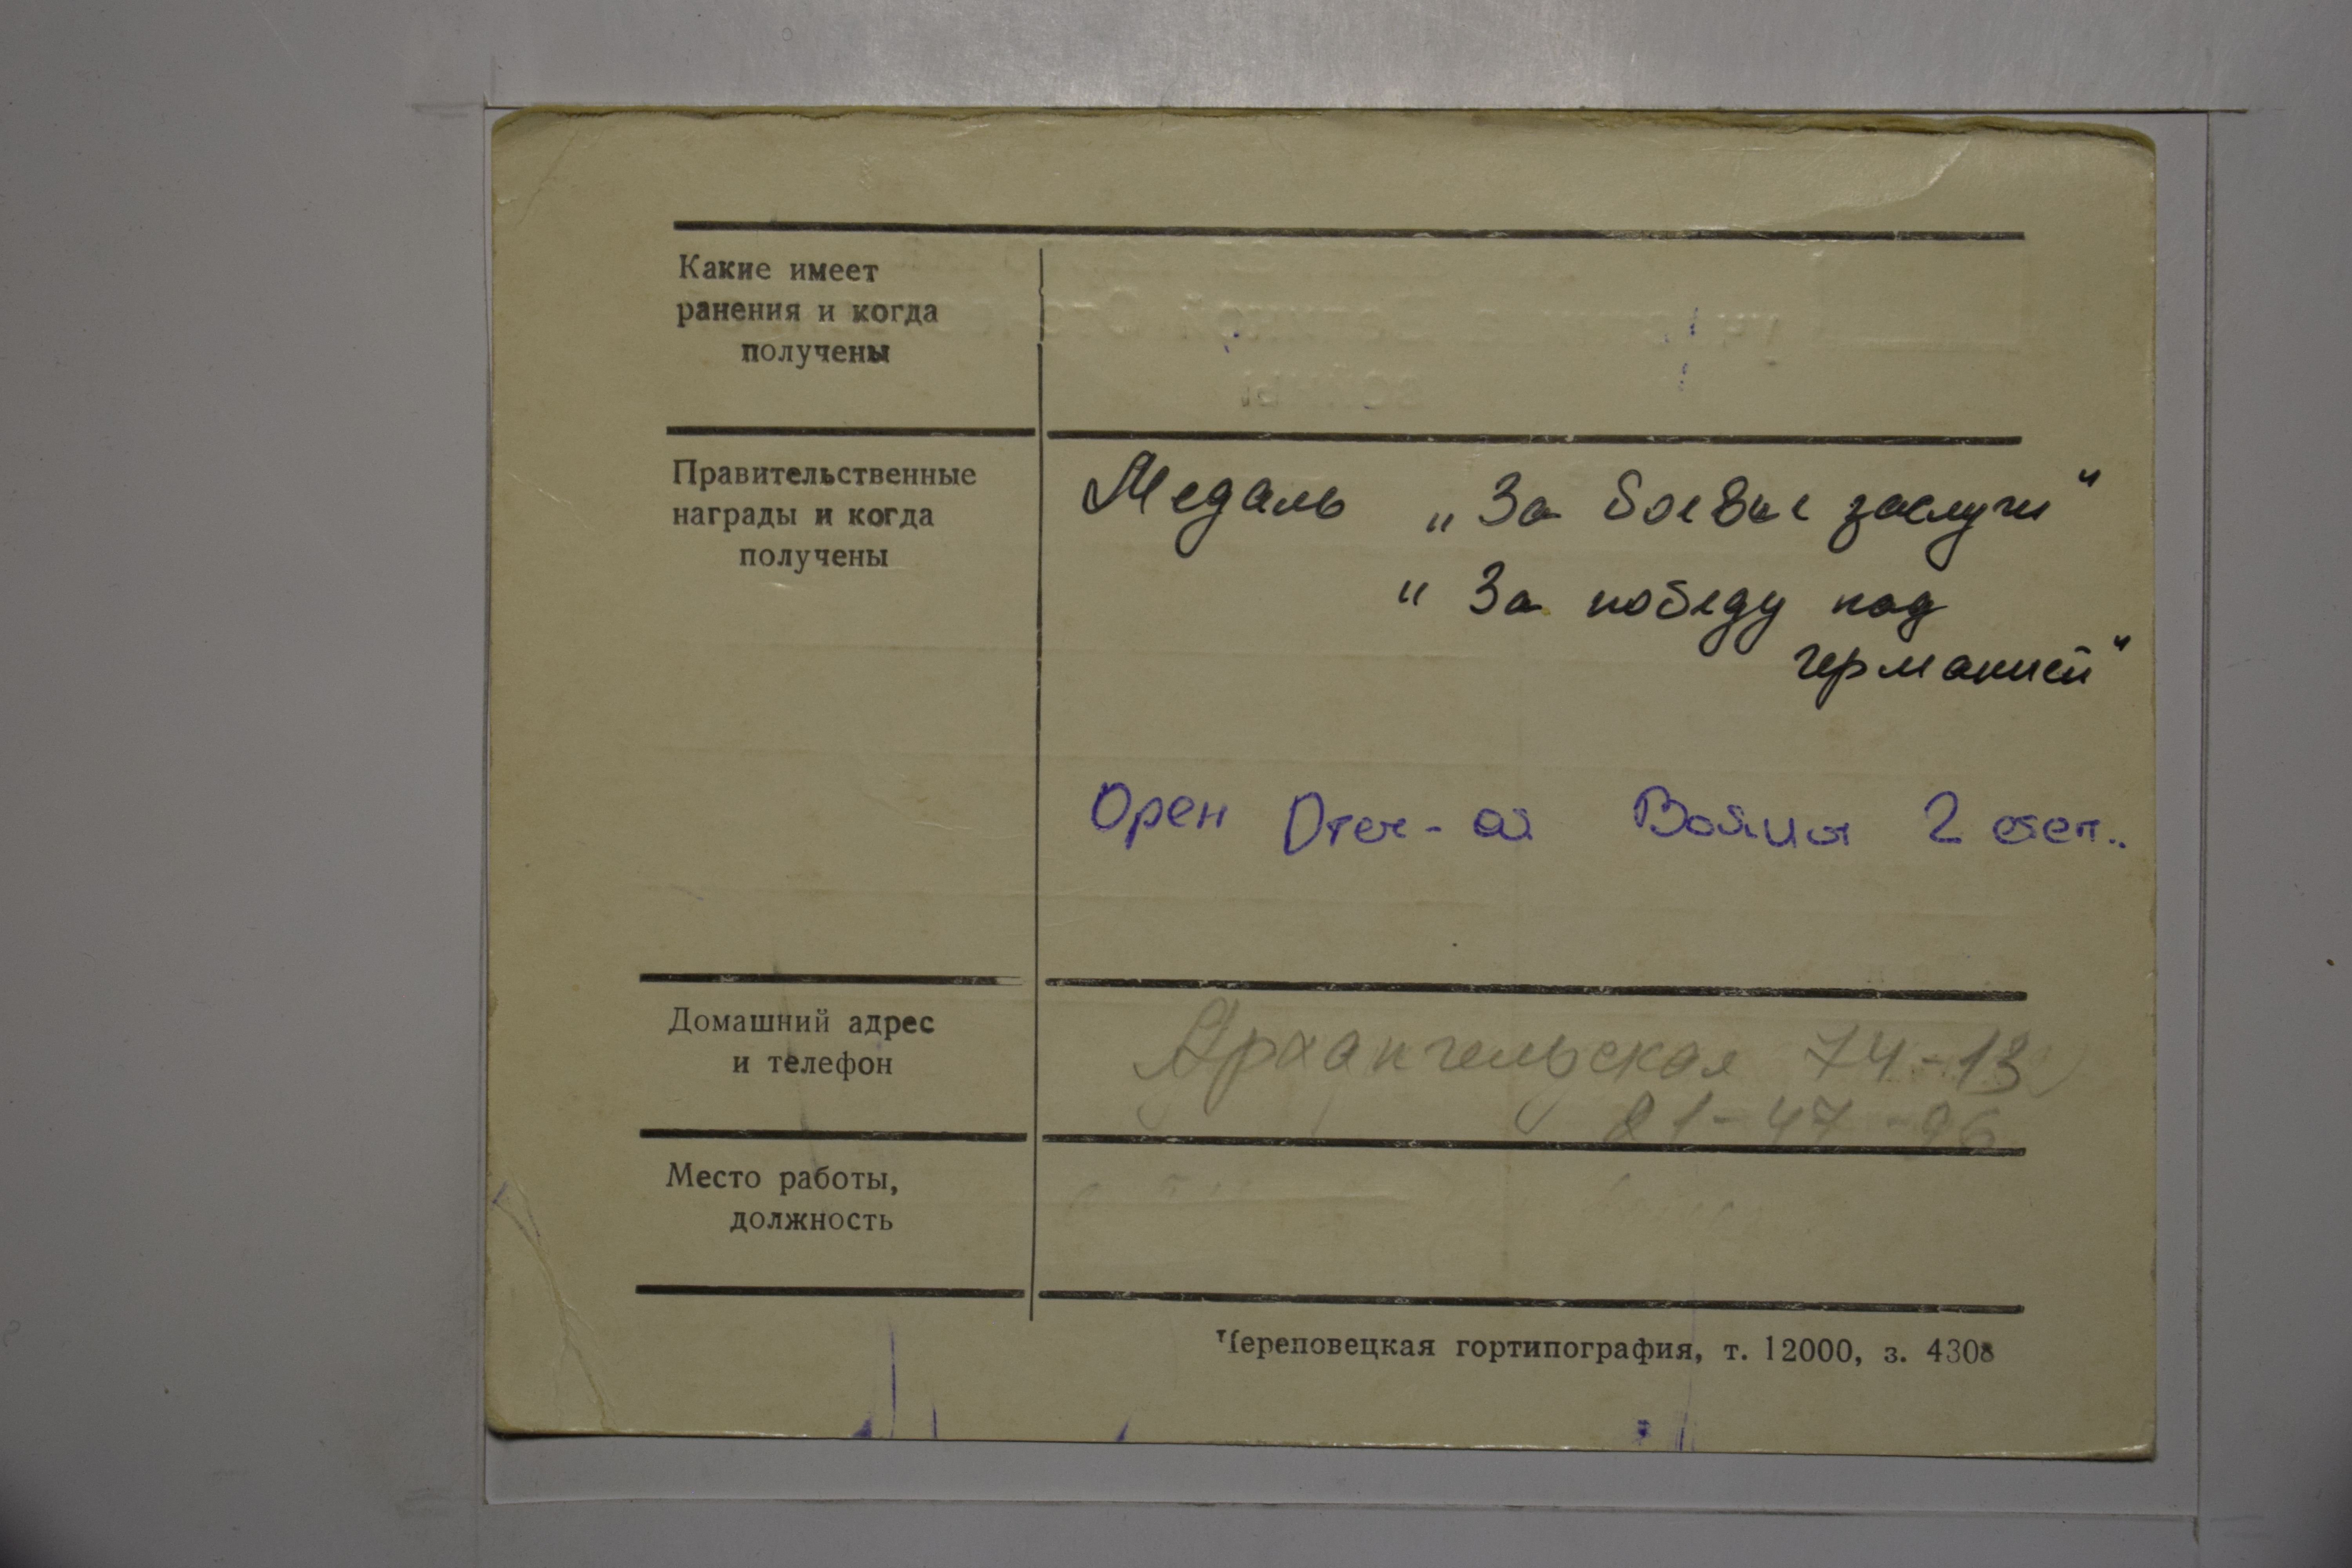 Какие имеет
ранения и когда
получены
Правительственные
награды и когда
получены
Медаль „За боевые заслуги"
"За победу над
германией"
Орен Отеч-ой Войны 2 степ..
Домашний адрес
и телефон
Архангельская 74-13
21-47-96
Место работы,
должность
Череповецкая гортипография, т. 12000, з. 4308